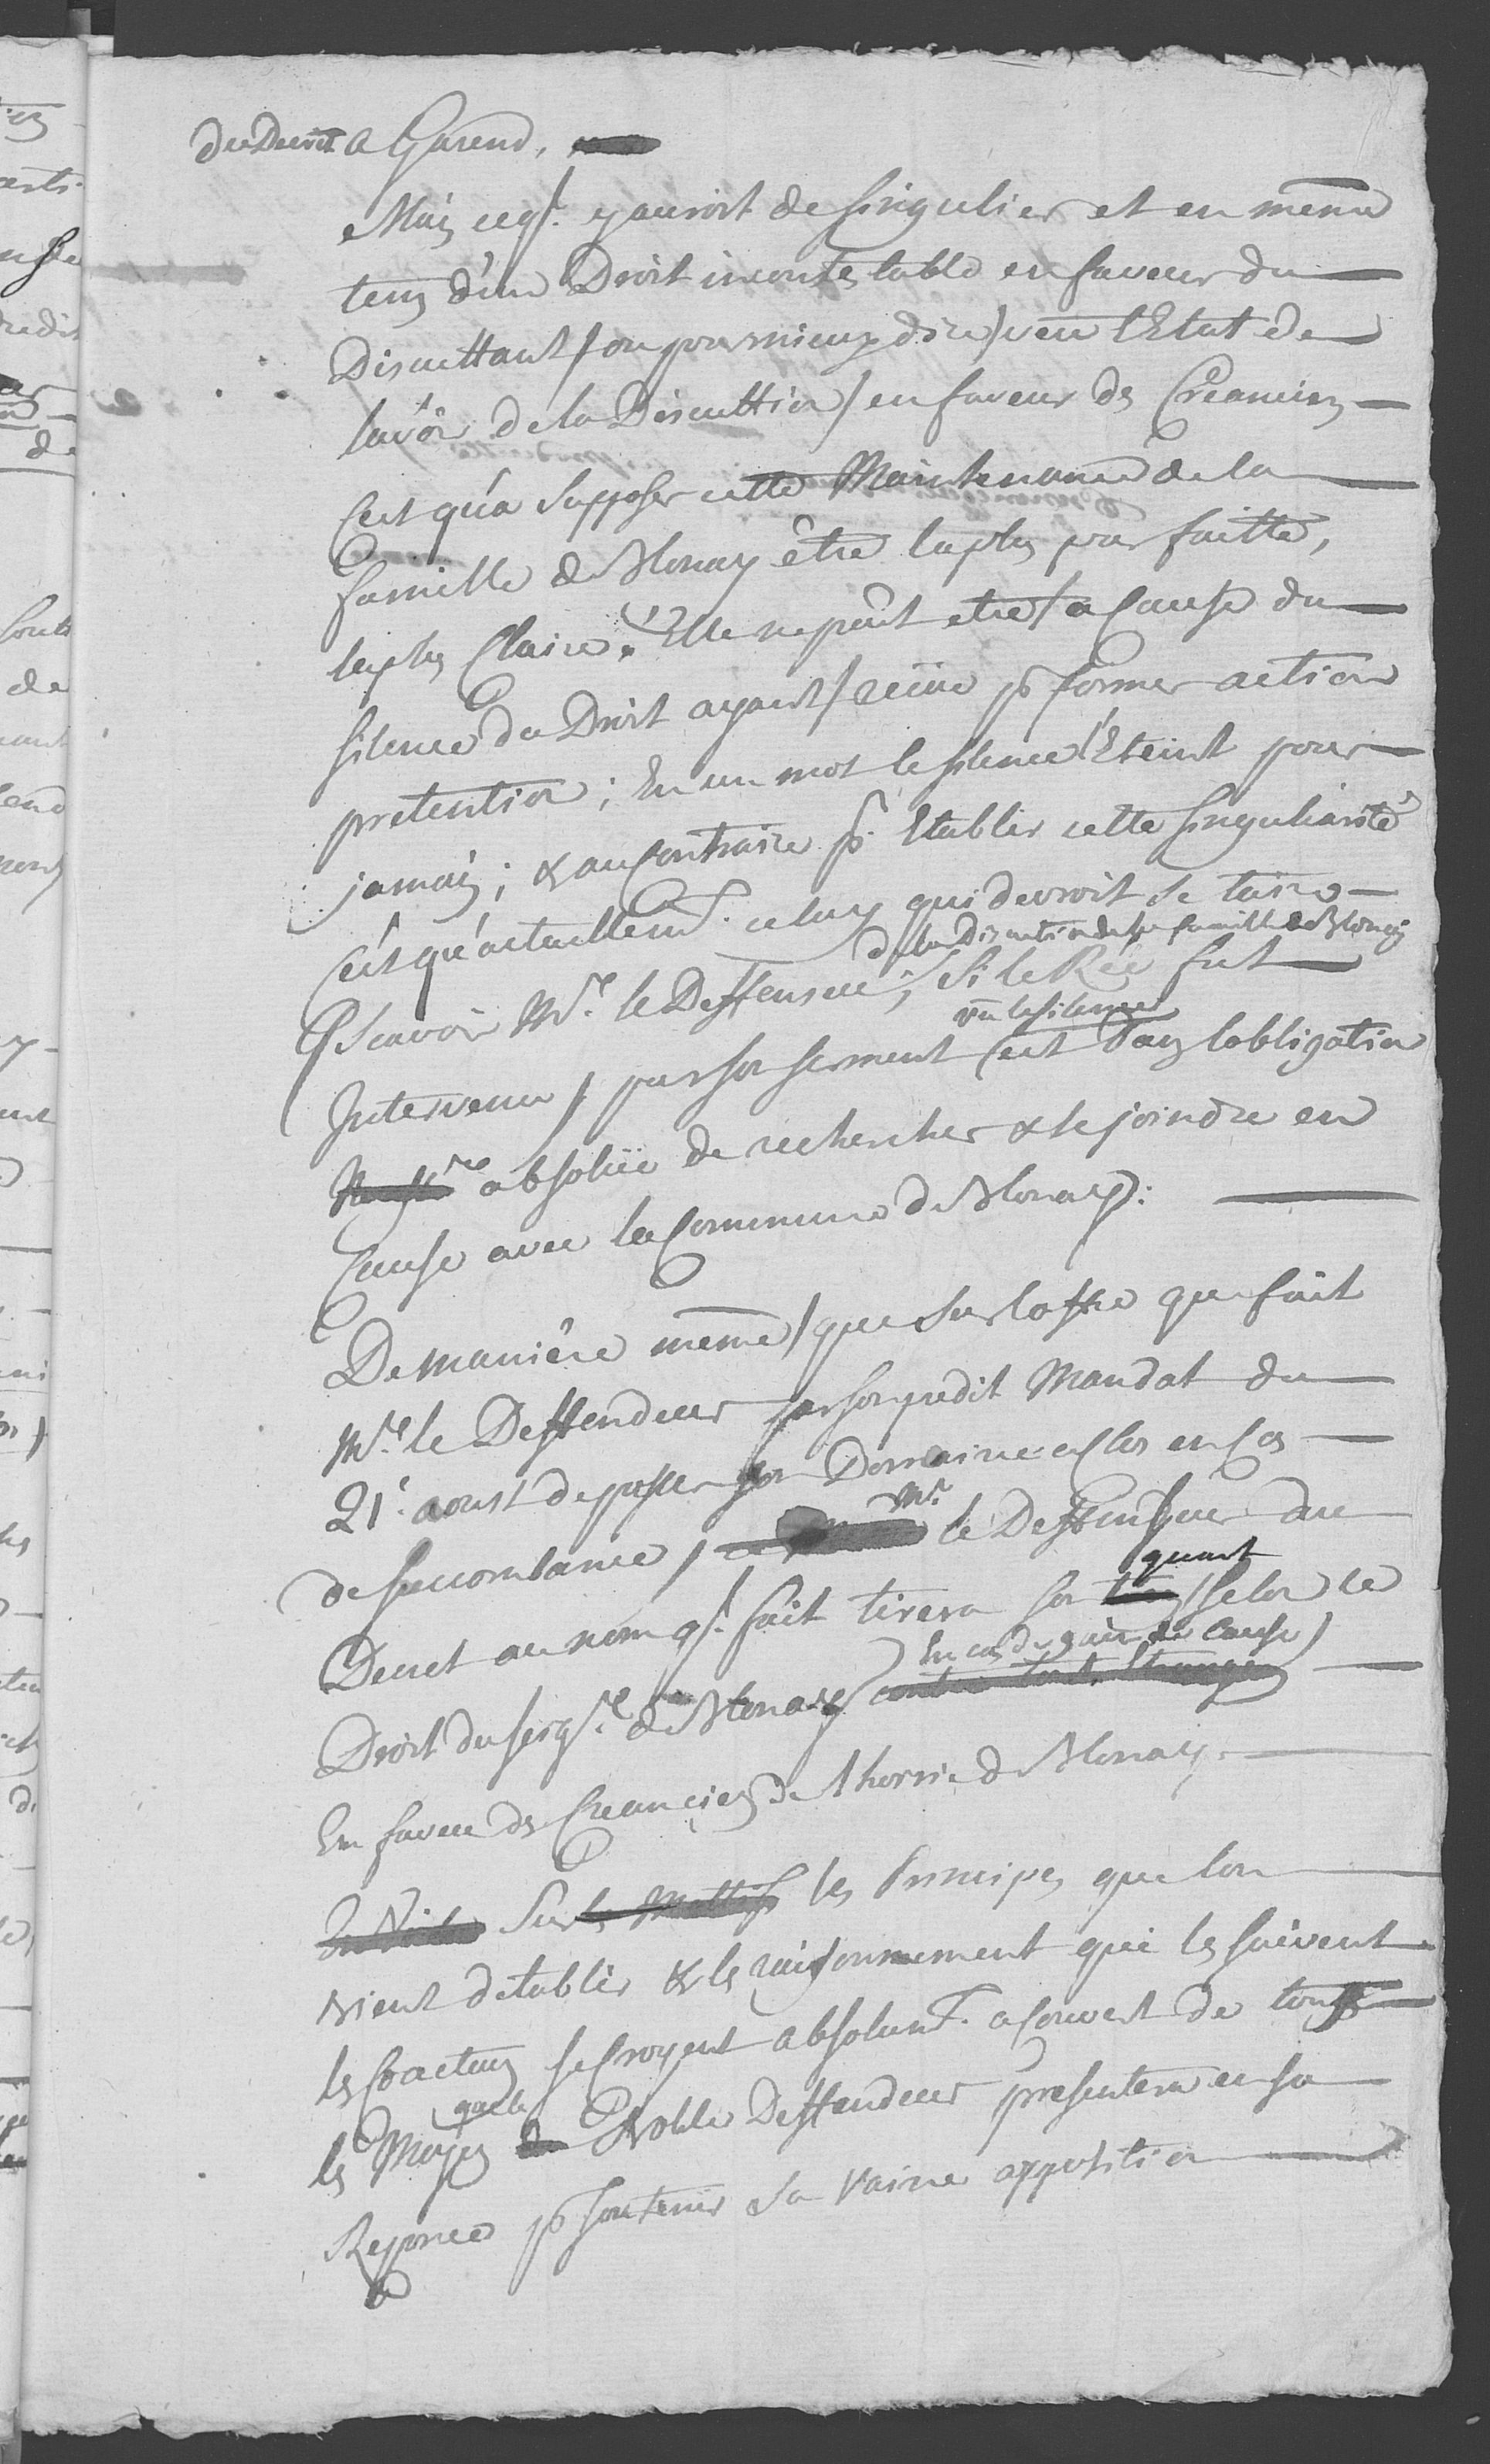 du Decret a Garend,
Mais ce q.l y auroit de singulier et en même
tems d'un Droit incontestable en faveur du
Discuttant / ou pour mieux dire / veu l'Etat de
la Discuttion / en faveur ds Créanciers
C'est qu'a supposer cette Maintenance de la
famille de Blonay être la plus parfaitte,
la plus Claire. Elle ne peut etre / a Cause du
silence du Droit ayant / recüe p.r former action
pretention ; En un mot le silence l'Eteint pour
jamais ; & au Contraire p.r Etablir cette singuliarité
C'est qu'actuellem.t celuy qui devroit se taire
de la Discution de la famille de Blonay
Scavoir Mr. le Deffenseur, Si le Rée fut
vu le silence
Intervenu / par son serment est dans l'obligation
absolüe de rechercher & se joindre en
Cause avec la Commune de Blonay :
De manière même / que sur l'offre que fait
Mr. le Deffendeur par son predit Mandat du
21.e aoust de passer son Domaine a Clos en Cas
de succombance / Mr. le Deffenseur du
quart
Decret au nom q.l fait tirera son selon le
En cas de gain de Cause)
Droit du seig.r de Blonay contre tout Etranger
En faveur ds Creanciers de l'hoirie de Blonay.
Sur les Mottifs les Principes que l'on
vient d'etablir & ls raisonnement qui les suivent
ls Coacteurs se Croyent absolum.t a Couvert de touts
que le
ls Moyens du Noble Deffendeur presentera en sa
Reponce p.r soutenir sa vaine opposition